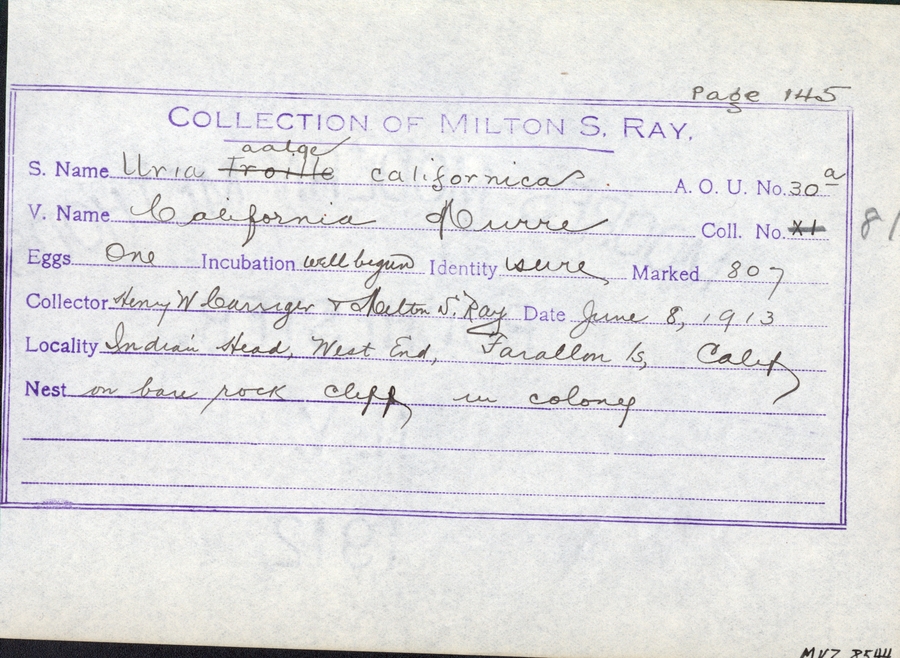 Page 145
COLLECTION OF MILTON S. RAY.
aalge
S. Name Uria Troille californica A. O. U. No. 30a
V. Name California Murre Coll. No. XI 81
Eggs One Incubation well begun Identity sure Marked 807
Collector Henry W Carriger & Milton S. Ray Date June 8, 1913
Locality Indian Head, West End, Farallon Is, Calif
Nest on bare rock cliff, in colony
MVZ 8544